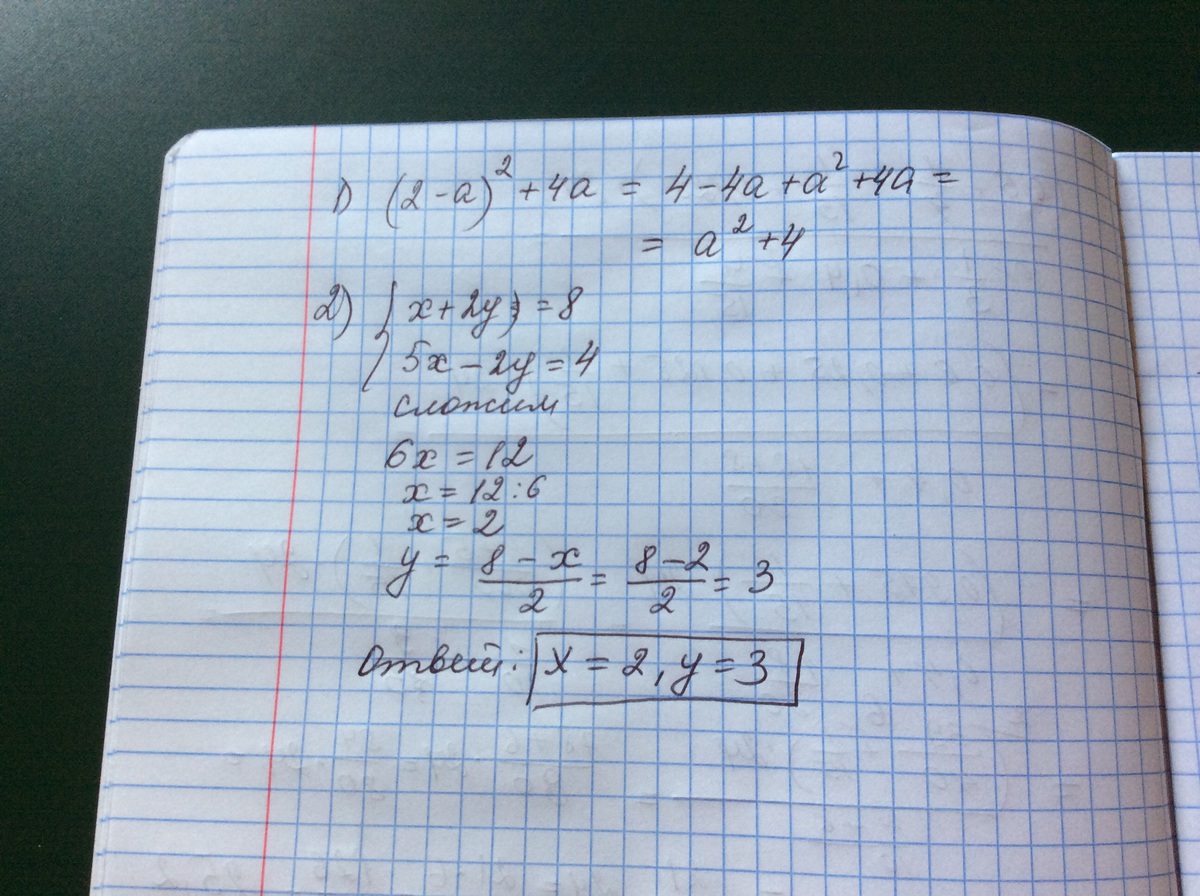 1) (2-a)² + 4a = 4 - 4a + a² + 4a =
= a² + 4
2) { x + 2y = 8
5x - 2y = 4
сложим
6x = 12
x = 12 : 6
x = 2
y = (8 - x)/2 = (8 - 2)/2 = 3
Ответ: x = 2, y = 3